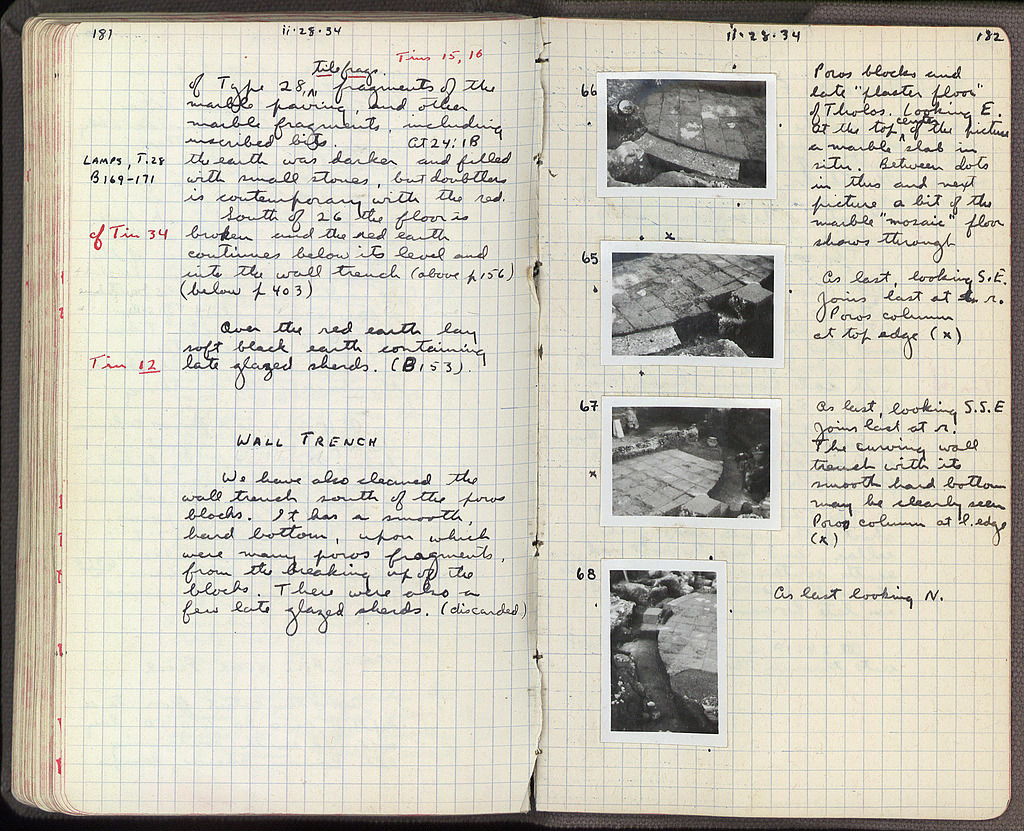 181
ii·28·34
Tins 15, 16
tile frags.
of Type 28, ^ fragments of the
marble paving, and other
marble fragments, including
inscribed bits. At 24:1B
LAMPS, T.28
the earth was darker and filled
B169-171
with small stones, but doubtless
is contemporary with the red.
South of 26 the floor is
cf Tin 34
broken and the red earth
continues below its level and
into the wall trench (above p 156)
(below p 403)
Over the red earth lay
soft black earth containing
Tin 12
late glazed sherds. (B153).
WALL TRENCH
We have also cleaned the
wall trench south of the poros
blocks. It has a smooth,
hard bottom, upon which
were many poros fragments,
from the breaking up of the
blocks. There were also a
few late glazed sherds. (discarded)
ii·28·34
182
66
Poros blocks and
late "plaster floor"
of Tholos. Looking E.
center
At the top ^ of the picture
a marble slab in
situ. Between dots
in this and next
picture a bit of the
marble "mosaic" floor
shows through
x
65
As last, looking S.E.
Joins last at r.
Poros column
at top edge (x)
67
As last, looking S.S.E
Joins last at r.
The curving wall
x
trench with its
smooth hard bottom
may be clearly seen
Poros column at l. edge
(x)
68
As last looking N.